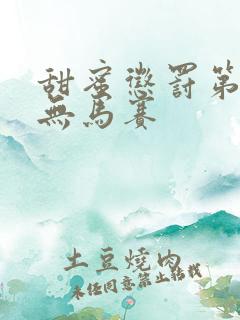 甜蜜懲罰第
無馬賽
土豆燒肉
未經同意禁止轉載